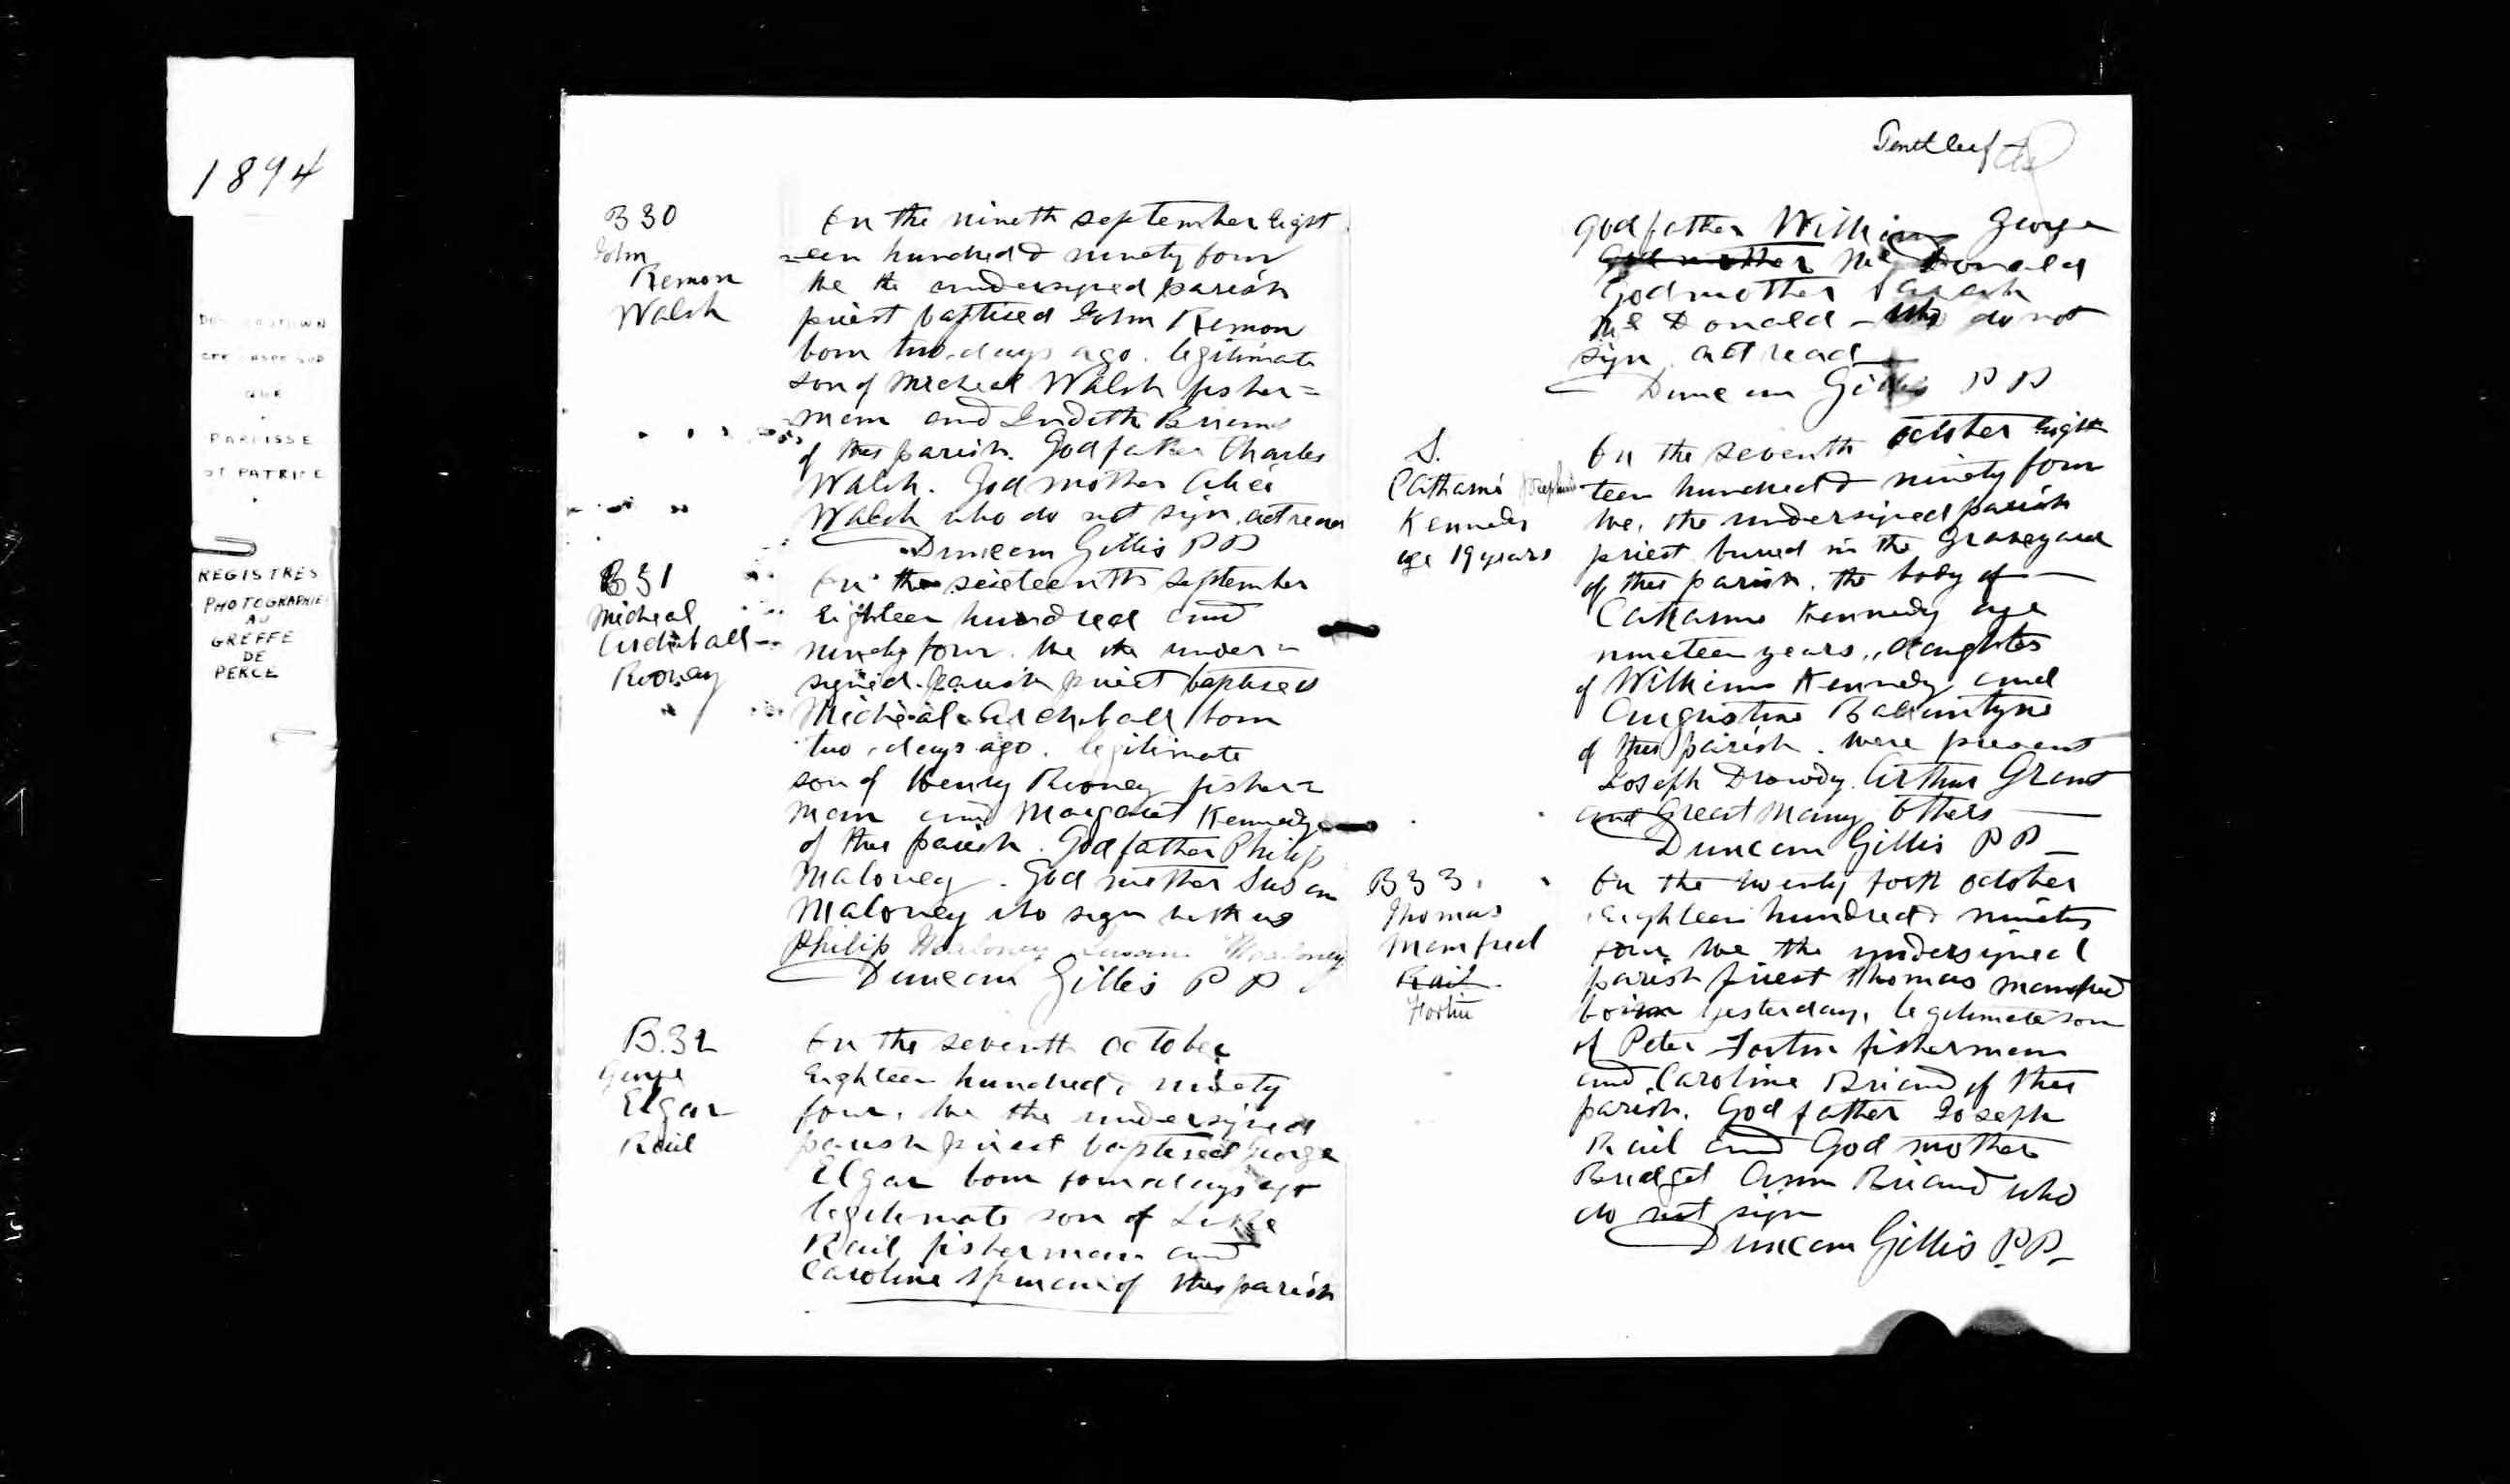 1894
CTE GASPE SUD
QUE
PAROISSE
ST PATRICE
REGISTRES
PHOTOGRAPHIES
AU
GREFFE
DE
PERCE
B 30
John
Remon
Walsh
On the nineth september eight
=een hundred & ninety four
We the undersigned parish
priest baptised John Remon
born two days ago. legitimate
son of Micheal Walsh fisher=
man and Judeth Briand
of this parish. Godfather Charles
Walsh. God mother Alice
Walsh who do not sign. act read
Duncan Gillis PP
B31
Micheal
Archiball
Rooney
On the sixteenth september
Eighteen hundred and
ninety four. We the under=
signed parish priest baptised
Micheal Archiball born
two days ago. legitimate
son of Henry Rooney fisher=
man and Margaret Kennedy
of this parish. Godfather Philip
Maloney. God mother Susan
Maloney who sign with us
Philip Maloney Susan Maloney
Duncan Gillis PP
B.32
George
Elgar
Rail
On the seventh october
Eighteen hundred, ninety
four, We the undersigned
parish priest baptised George
Elgar born four days ago
legitimate son of Luke
Rail fisherman and
Caroline of this parish
Tenth leaf
Godfather William George
God mother Mc Donald
Godmother Sarah
Mc Donald - who do not
sign act read
Duncan Gillis PP
S.
Catharine Josephine
Kennedy
age 19 years
On the seventh october eigh
teen hundred & ninety four
We, the undersigned parish
priest buried in the graveyard
of this parish. the body of
Catharine Kennedy age
nineteen years, daughter
of William Kennedy and
Augustine Balantyne
of this parish. were present
Joseph Drowdy. Arthur Grant
and Great Many others
Duncan Gillis PP
B33.
Thomas
Manfred
Rail
Fortin
On the twenty forth october
Eighteen hundred ninety
four We the undersigned
parish priest Thomas manfred
born yesterday, legitimate son
of Peter Fortin fisherman
and Caroline Briand of this
parish. God father Joseph
Rail and God mother
Bridget Ann Briand who
do not sign
Duncan Gillis P.P.